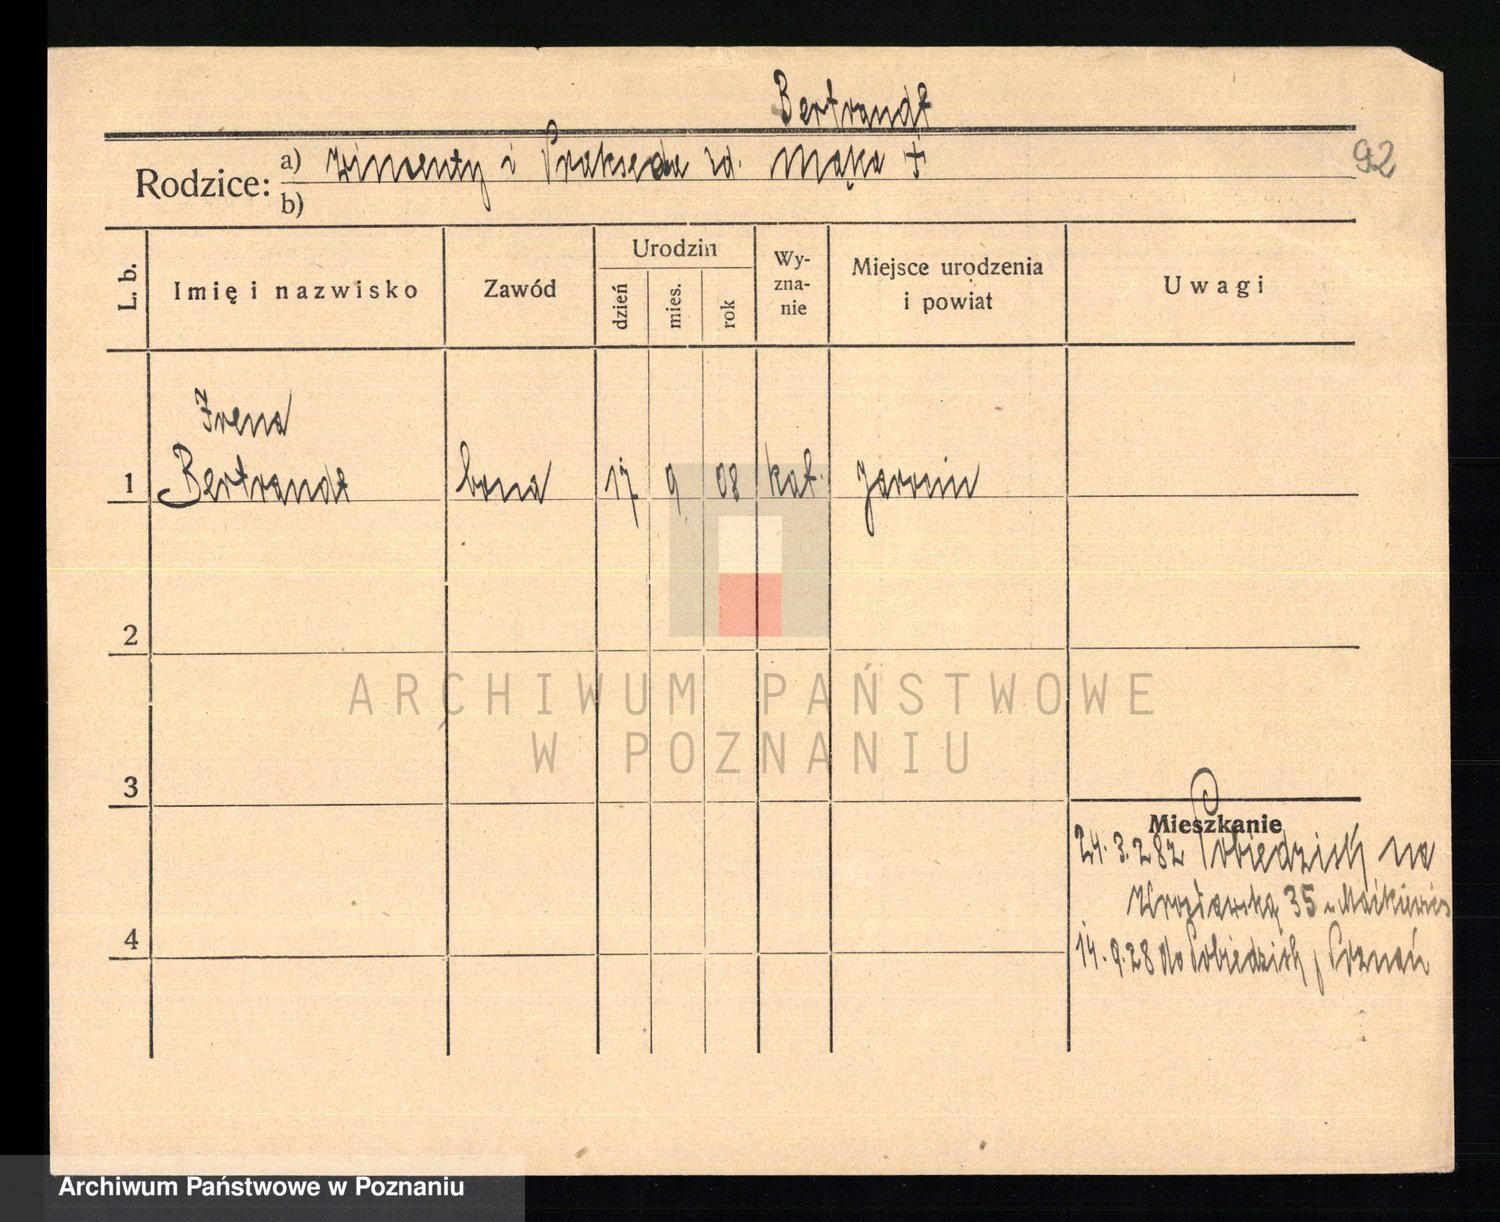 Bertrandt
92
Rodzice: a) Wincenty i Prakseda zd. Mąka +
b)
L. b. Imię i nazwisko Zawód Urodzin dzień mies. rok Wy-zna-nie Miejsce urodzenia i powiat Uwagi
Irena
1 Bertrandt bona 17 9 08 kat. Jarocin
2
3
Mieszkanie
24. 3. 28 z Pobiedzisk na
Wrocławską 35
4
14. 9. 28 do Pobiedzisk, Poznań
ARCHIWUM PAŃSTWOWE
W POZNANIU
Archiwum Państwowe w Poznaniu